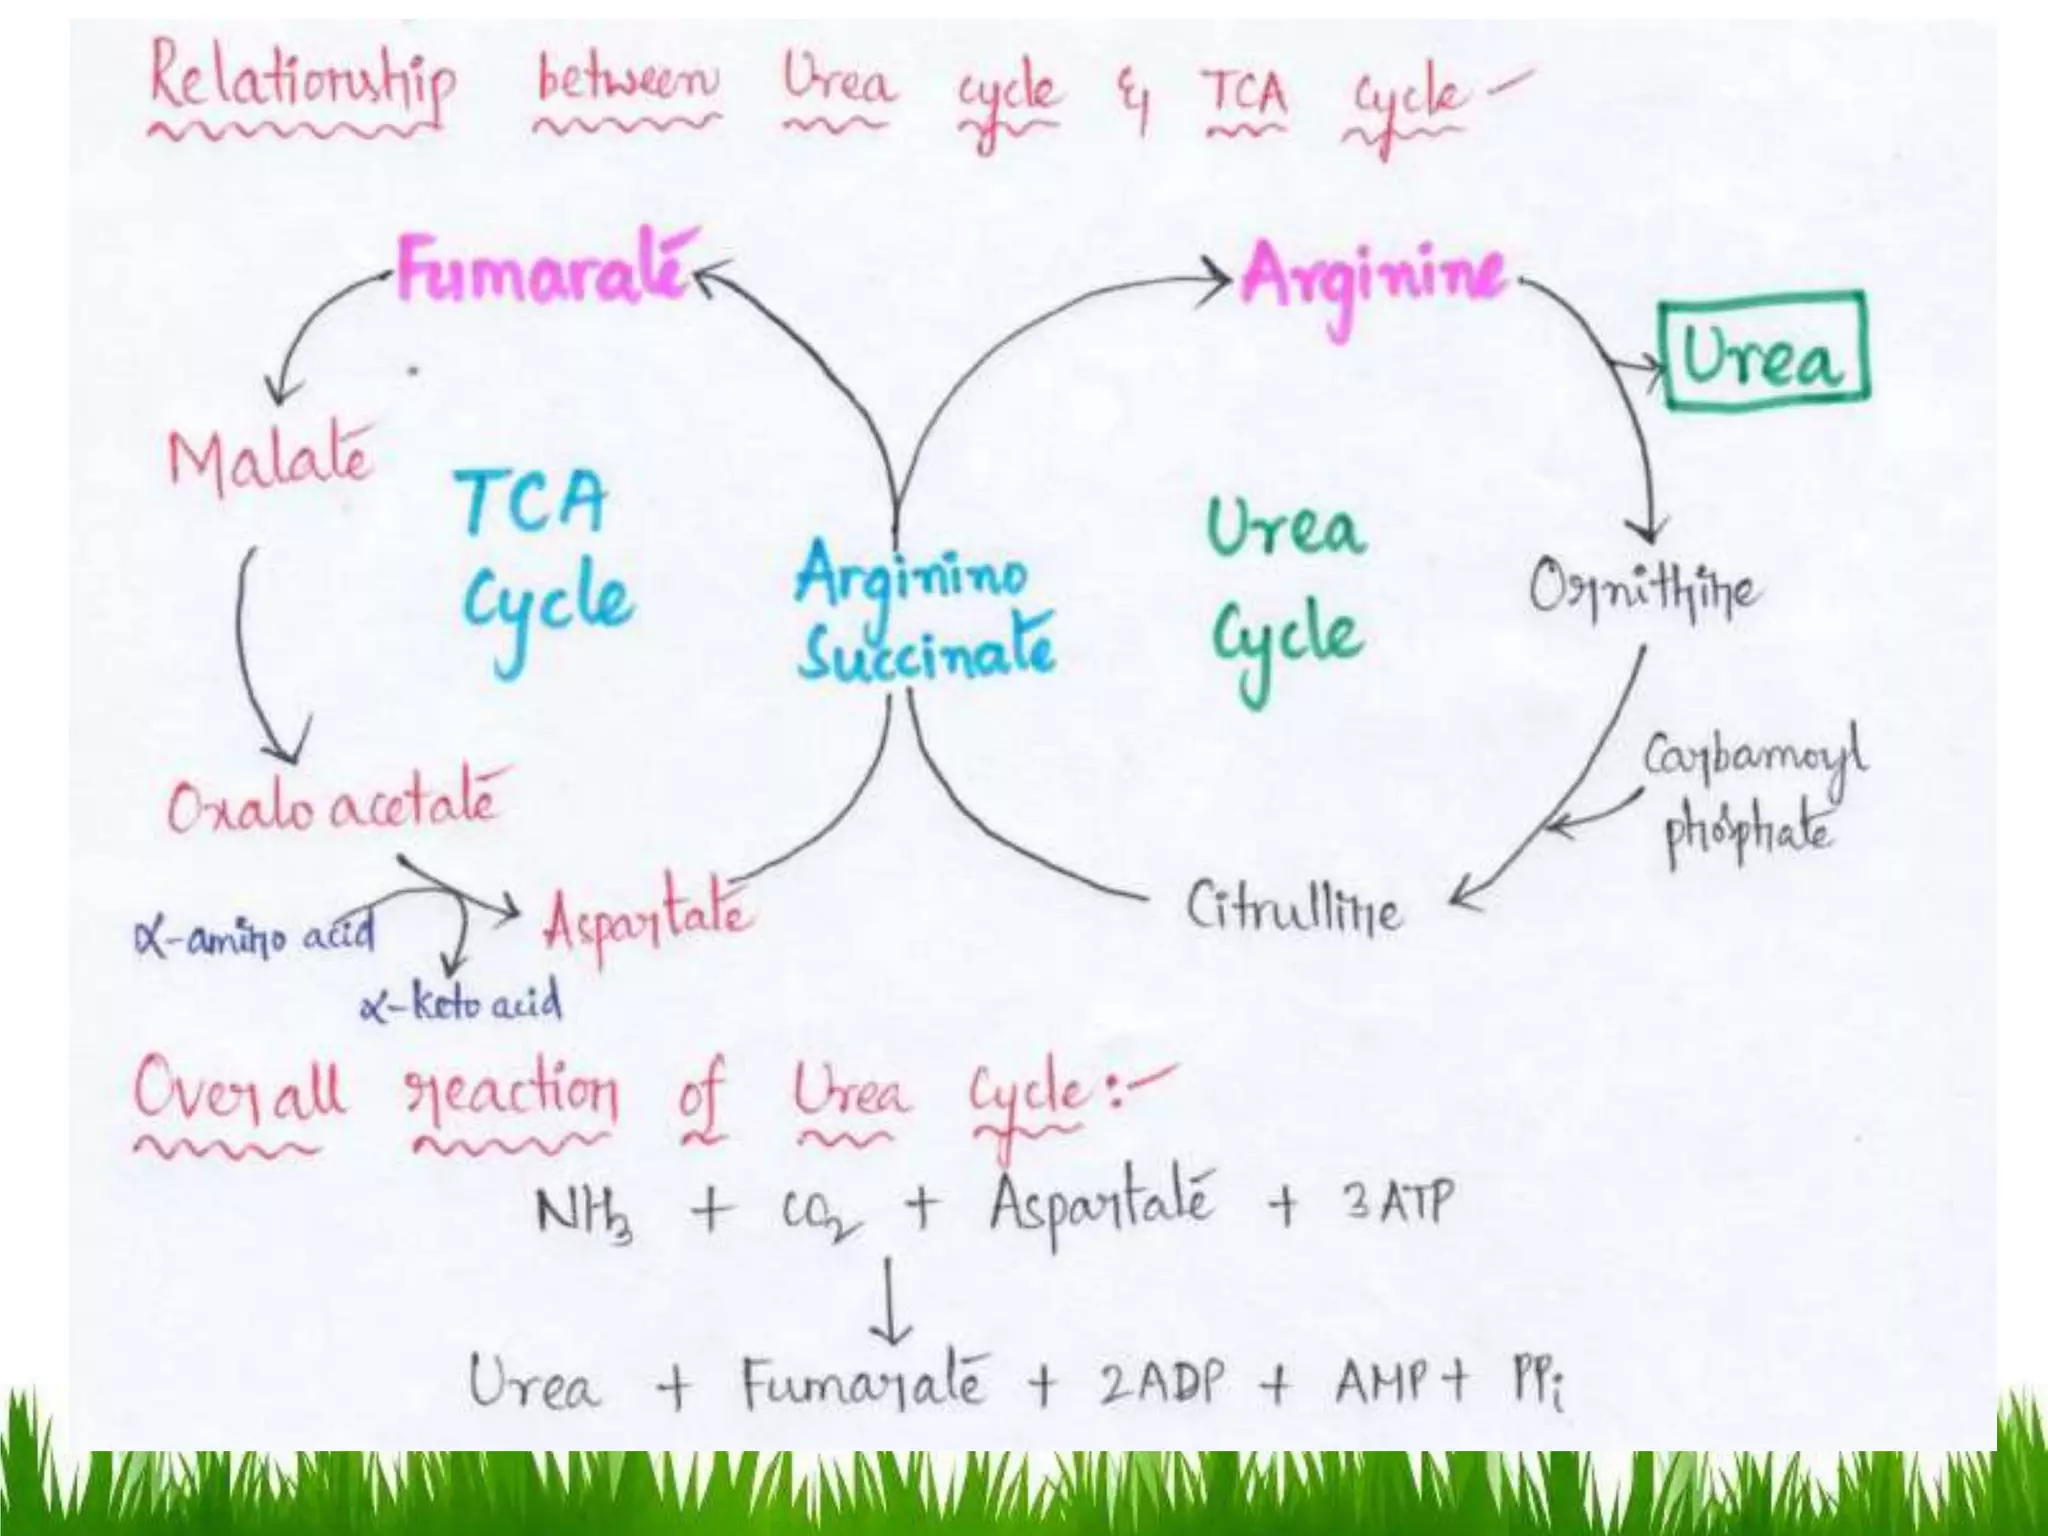 Relationship between Urea cycle & TCA cycle -
Fumarate
Arginine
Urea
Malate
TCA
Cycle
Urea
Cycle
Arginino
Succinate
Ornithine
Carbamoyl
phosphate
Oxaloacetate
α-amino acid
Aspartate
Citrulline
α-keto acid
Overall reaction of Urea Cycle:-
NH₃ + CO₂ + Aspartate + 3 ATP
Urea + Fumarate + 2ADP + AMP + PPi